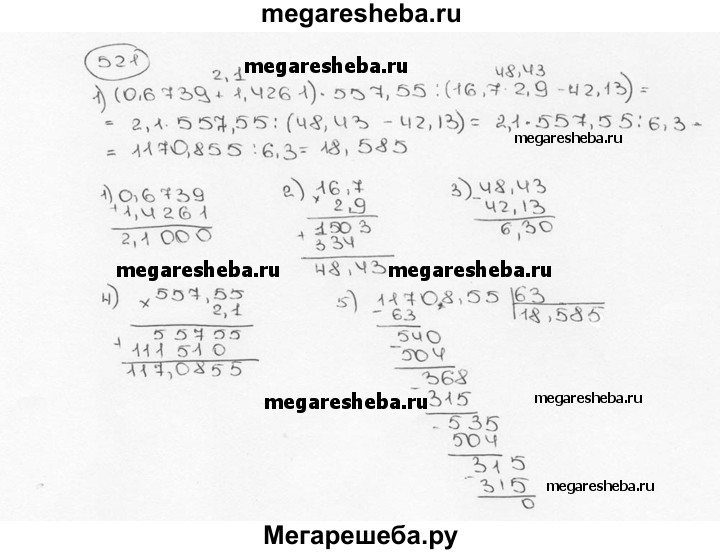 megaresheba.ru
521
2,1 megaresheba.ru 48,43
1) (0,6739 + 1,4261) · 557,55 : (16,7 · 2,9 - 42,13) =
= 2,1 · 557,55 : (48,43 - 42,13) = 2,1 · 557,55 : 6,3 =
megaresheba.ru
= 1170,855 : 6,3 = 18,585
1) 0,6739
+ 1,4261
2,1000
2) 16,7
× 2,9
+ 1503
334
48,43
3) 48,43
- 42,13
6,30
megaresheba.ru megaresheba.ru
4) × 557,55
2,1
+ 55755
111510
117,0855
5) 1170,8,55 | 63
- 63 18,585
540
- 504
368
- 315
- 535
504
315
- 315
0
megaresheba.ru
megaresheba.ru
megaresheba.ru
Мегарешеба.ру